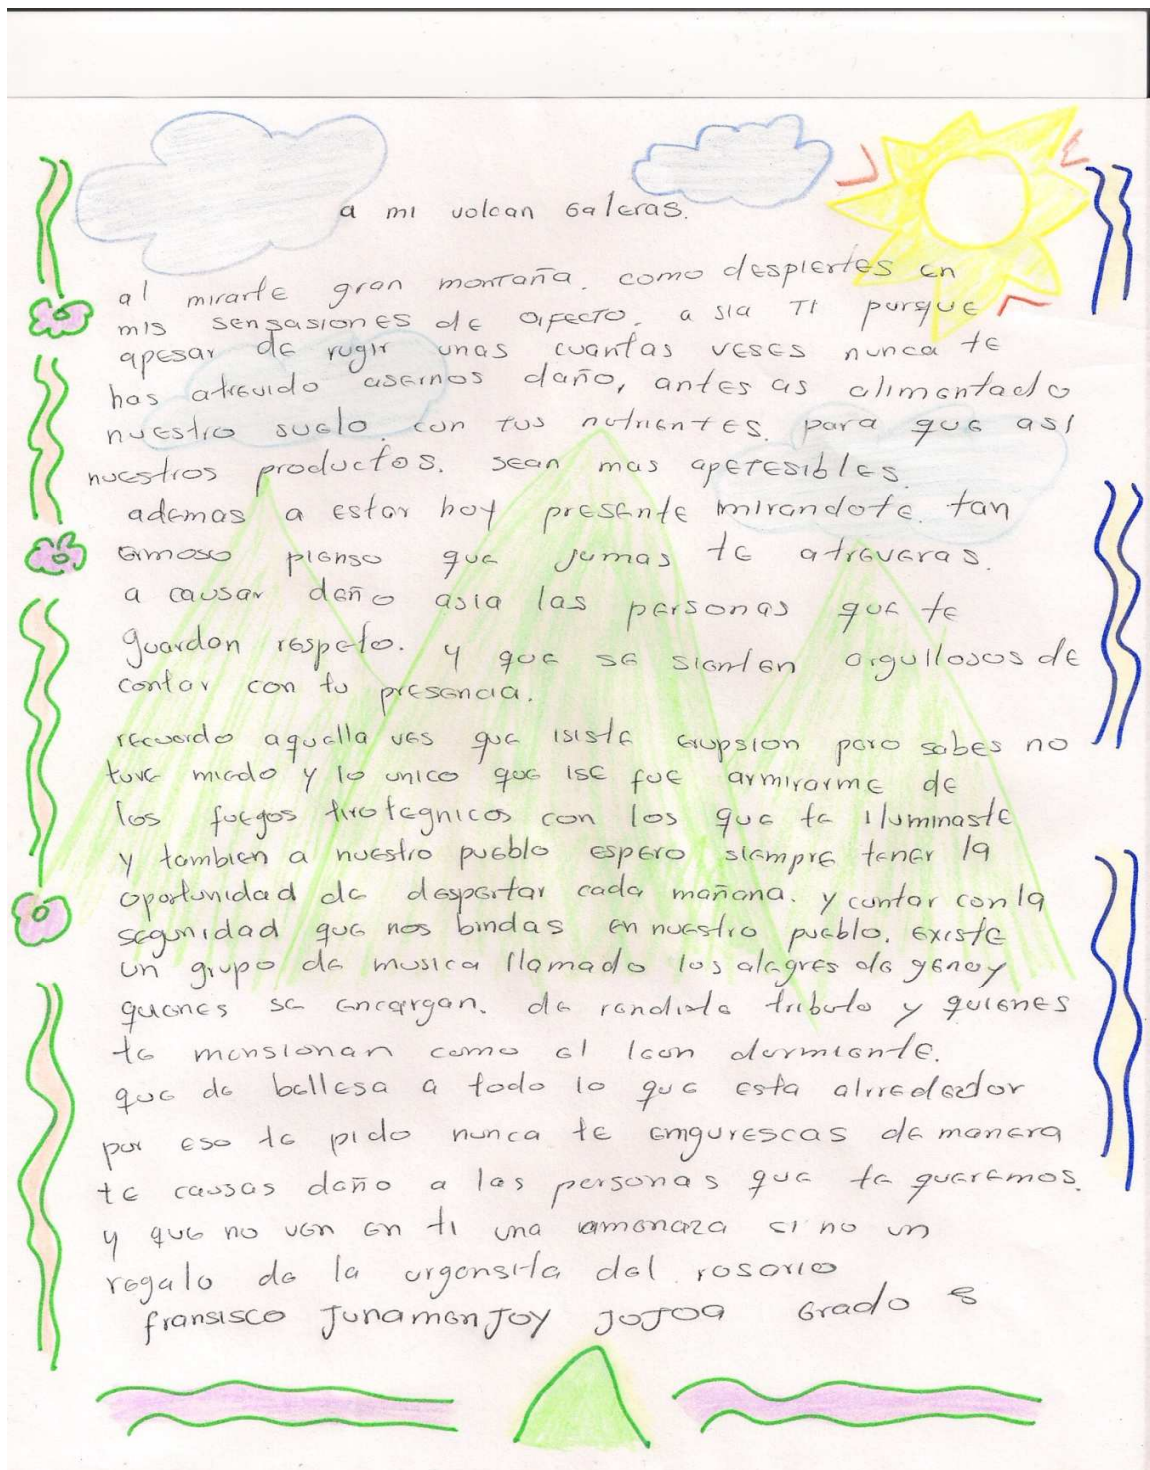 a mi volcan Galeras.
al mirarte gran montaña. como despiertes en
mis sensasiones de afecto. a sia TI purque
apesar de rugir unas cuantas veses nunca te
has atrevido asernos daño, antes as alimentado
nuestro suelo. con tus nutrientes. para que así
nuestros productos. sean mas apetesibles.
ademas a estar hoy presente mirandote. tan
ermoso pienso que jamas te atreveras.
a causar daño asia las personas que te
guardan respeto. y que se sienten orgullosos de
contar con tu presencia.
recuerdo aquella ves que isiste erupsion pero sabes no
tuve miedo y lo unico que ise fue armirarme de
los fuegos tirotegnicos con los que te iluminaste
y tambien a nuestro pueblo espero siempre tener la
oportunidad de despertar cada mañana. y contar con la
seguridad que nos bindas en nuestro pueblo. existe
un grupo de musica llamado los alegres de genoy
quienes se encargan. de rendirte tributo y quienes
te mensionan como el leon durmiente.
que da bellesa a todo lo que esta alrrededor
por eso te pido nunca te emgurescas de manera
te causas daño a las personas que te queremos.
y que no ven en ti una amenaza si no un
regalo de la virgensita del rosario
fransisco Junamenjoy JOJOA Grado 8